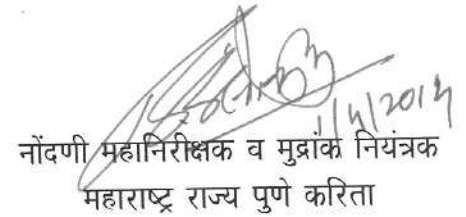 नोंदणी महानिरीक्षक व मुद्रांक नियंत्रक
महाराष्ट्र राज्य पुणे करिता